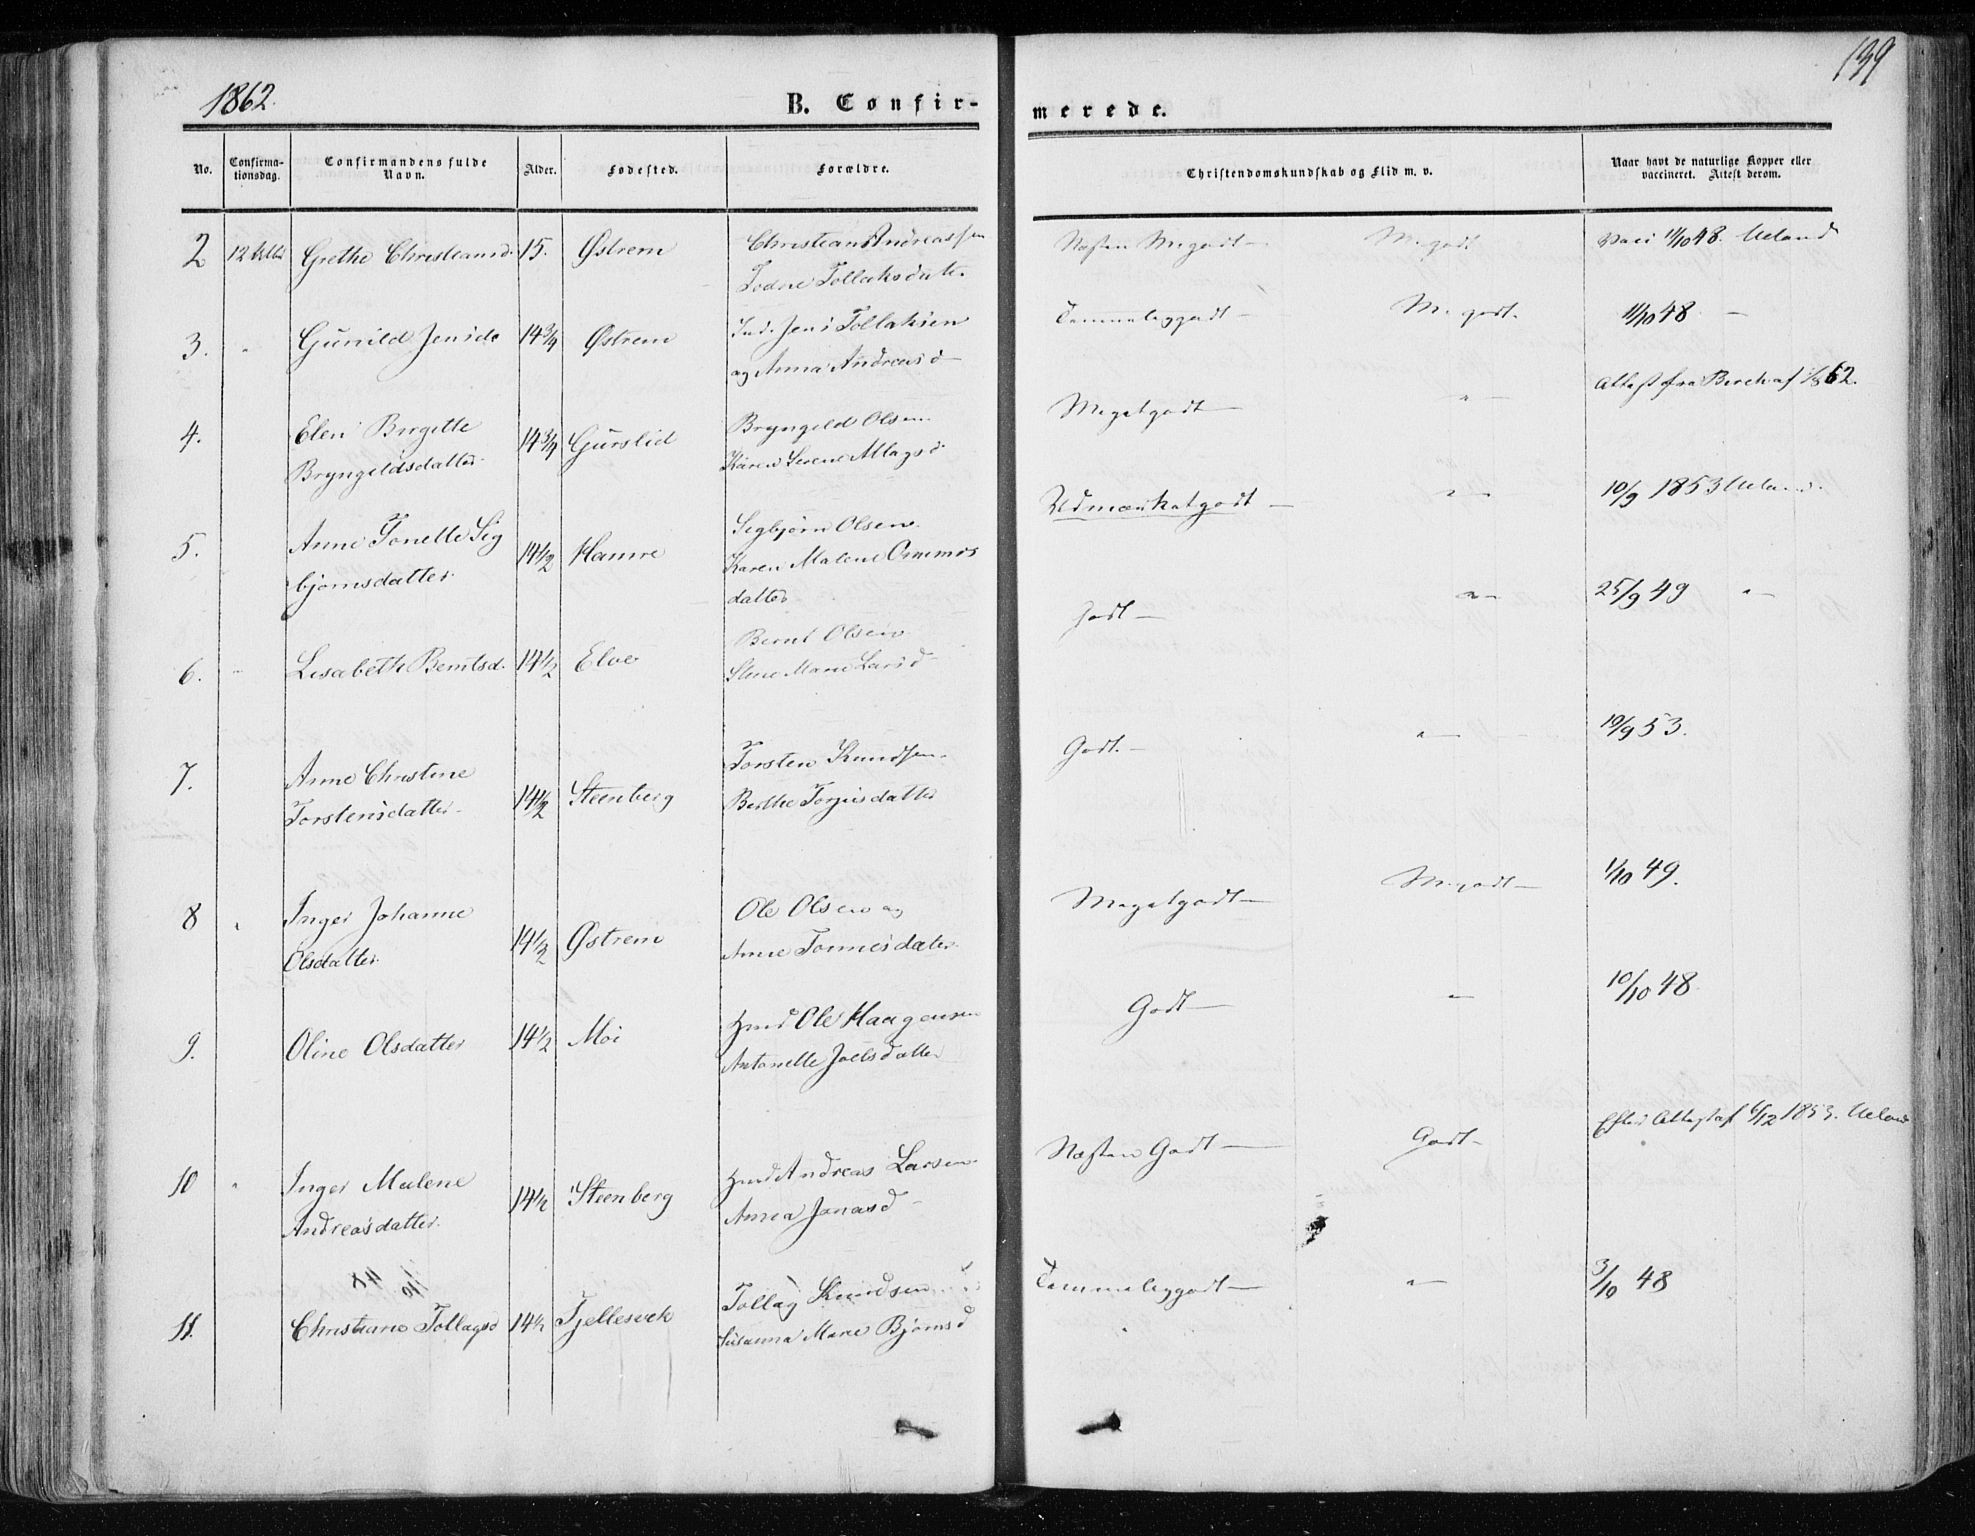 1862.
139
B. Confir-
merede.
No.
Confirma-
tionsdag.
Confirmandens fulde
Navn.
Alder.
Fødested.
Forældre.
Christendomskundskab og Flid m. v.
Naar havt de naturlige Kopper eller
vaccineret. Attest derom.
2 Grethe Christiansd. 15. Østrem
Christian Andreassen
Todne Tollaksdatr.
Næsten Megodt — Megodt Vacc 11/10 48. Ueland
3. Gunild Jensdr 14 3/4 Østrem
Ind. Jens Tollaksen
og Anna Andreasd —
Temmeliggodt — M. godt. 11/10 48 —
4. Elen Birgitte
Bryngeldsdatter. 14 3/4 Gurslid
Bryngeld Olsen
Karen Serene Magsd
Megetgodt — " —
Attest fra Birch af 1/8 62.
5. Anne Tonette Sig
bjørnsdatter. 14 1/2 Hamre
Segbjørn Olsen.
Karen Malene Ommds
datter
Udmærketgodt — " — 10/9 1853 Ueland.
6. — Lisabeth Berntsd. 14 1/2 Elve
Bernt Olsen
Stine Marie Larsd —
Godt — " — 25/9 49 " —
7. Anne Christine
Torstensdatter. 14 1/2 Steenberg
Torsten Knudsen.
Berthe Torjusdatter
Godt. — " — 19/9 53.
8 " Inger Johanne
Olsdatter 14 1/2 Østrem
Ole Olsen og
Anne Tonnesdater.
Megetgodt — Megodt — 1/10 49.
9. Oline Olsdatter 14 1/2 Moi
Hmd Ole Haagensen
Antonette Joelsdatter
Godt — " — 10/10 48
10 " Inger Malene
Andreasdatter. 14 1/2 Steenberg
Hmd Andreas Larsen
Anna Jonasd —
Næsten Godt — Godt —
Efter Attest af 6/12 1853. Ueland
11. Christiane Tollagsd 14 1/2 Tjellesvek
Tollag Knudsen
Susanna Marie Bjørnsd
Temmeliggodt — " — 3/10 48